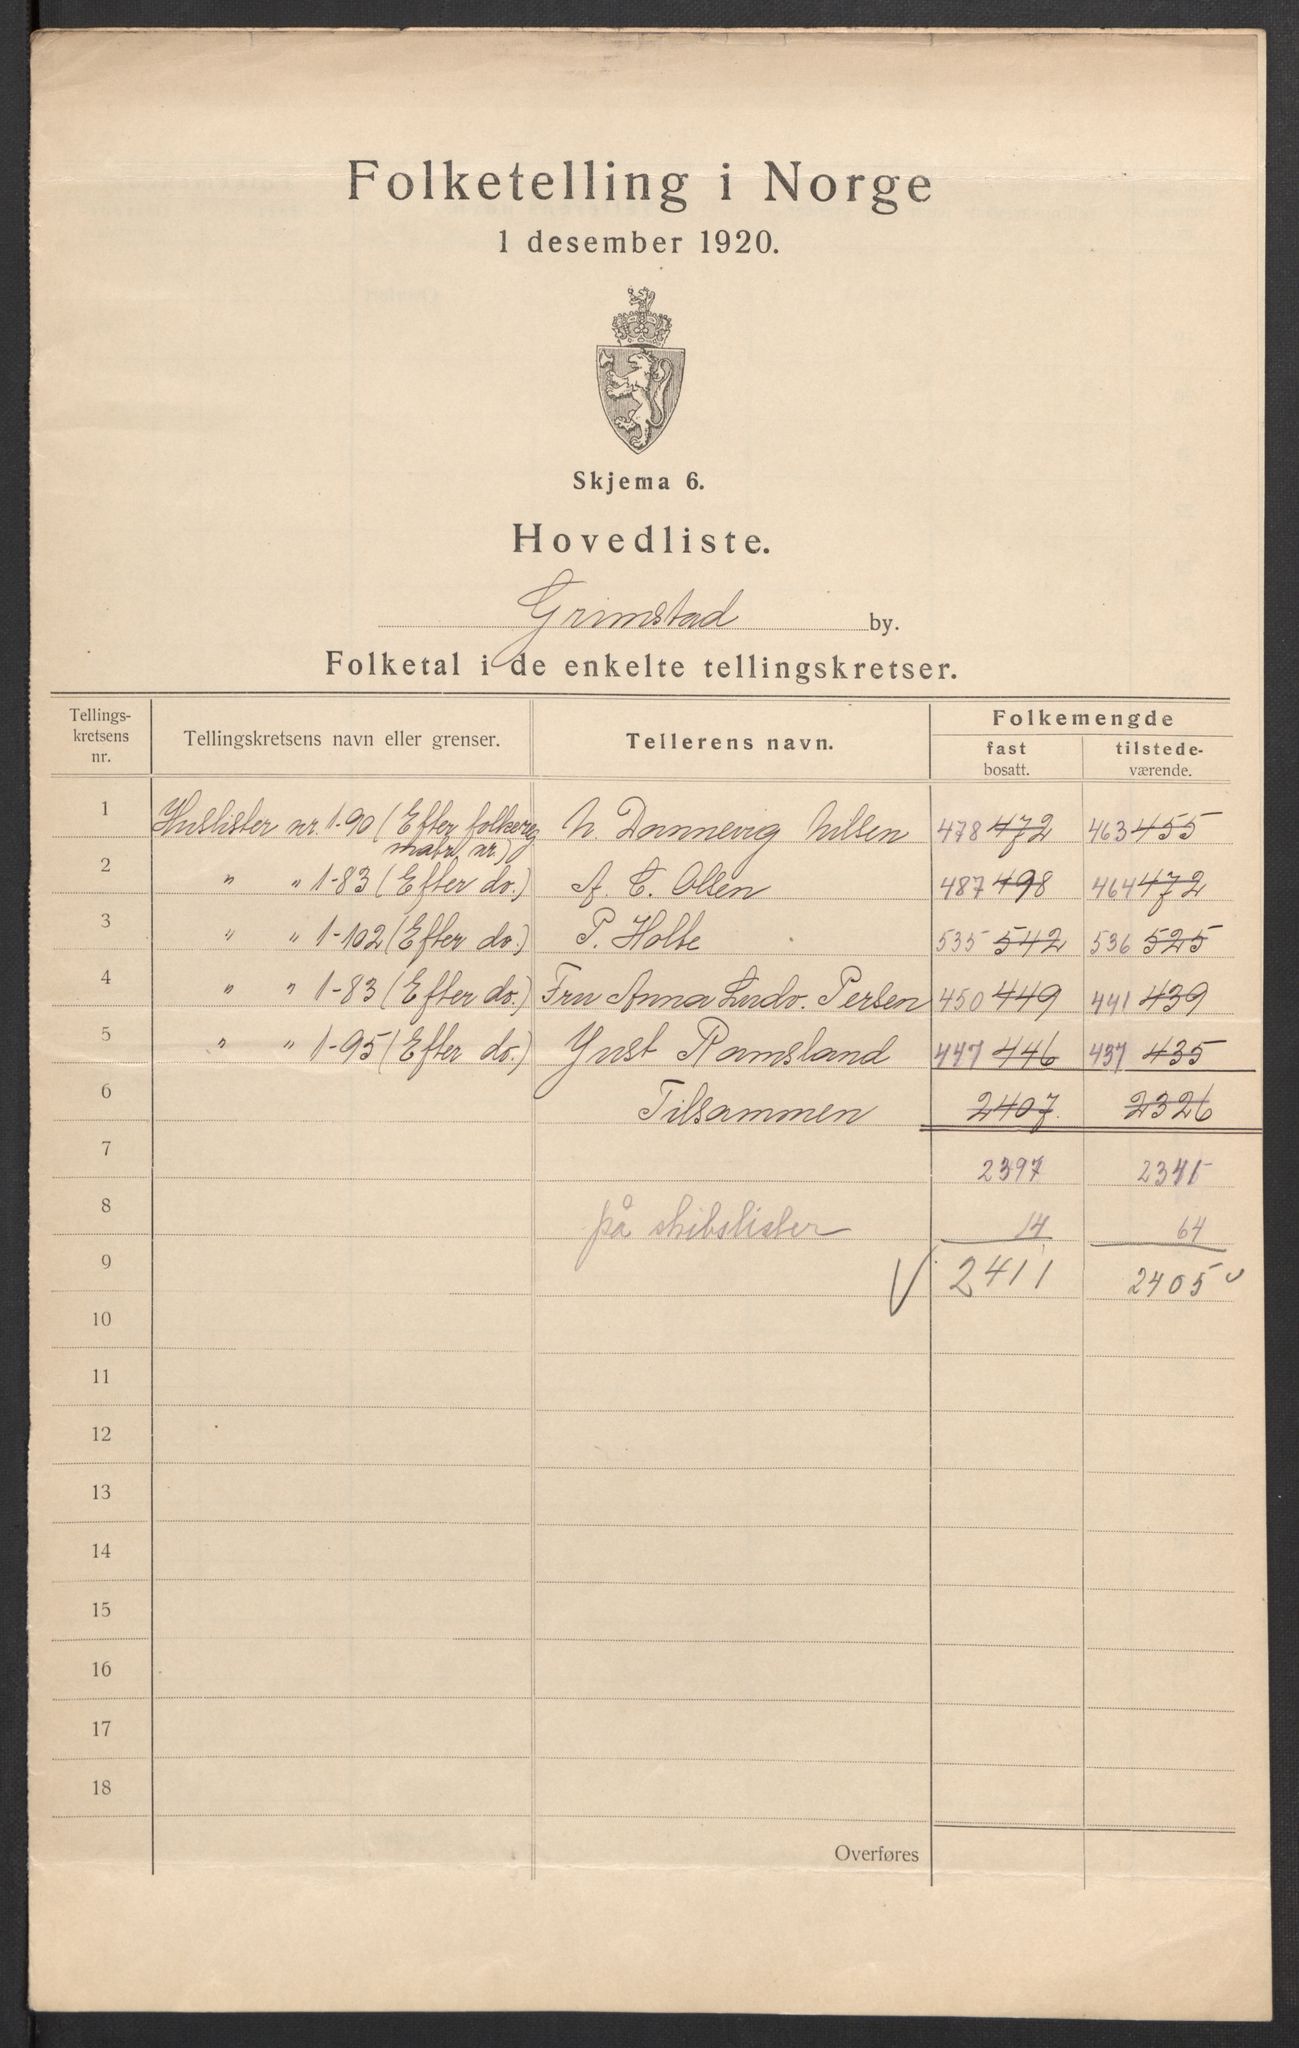 Folketelling i Norge
1 desember 1920.
Skjema 6.
Hovedliste.
Grimstad by.
Folketal i de enkelte tellingskretser.
Tellings-kretsens nr. Tellingskretsens navn eller grenser. Tellerens navn. Folkemengde
fast bosatt. tilstede-værende.
1 Huslister nr. 1-90 (Efter folkereg N. Dannevig Nilsen 478 472 463 455
matr. nr.)
2 " " 1-83 (Efter do.) A. C. Olsen 487 498 464 472
3 " " 1-102 (Efter do.) P. Holte 535 542 536 525
4 " " 1-83 (Efter do.) Fru Anna Ludv. Persen 450 449 441 439
5 " " 1-95 (Efter do.) Just Ramsland 447 446 437 435
6 Tilsammen 2407 2326
7 2397 2341
8 på skibslister 14 64
9 2411 2405
10
11
12
13
14
15
16
17
18
Overføres